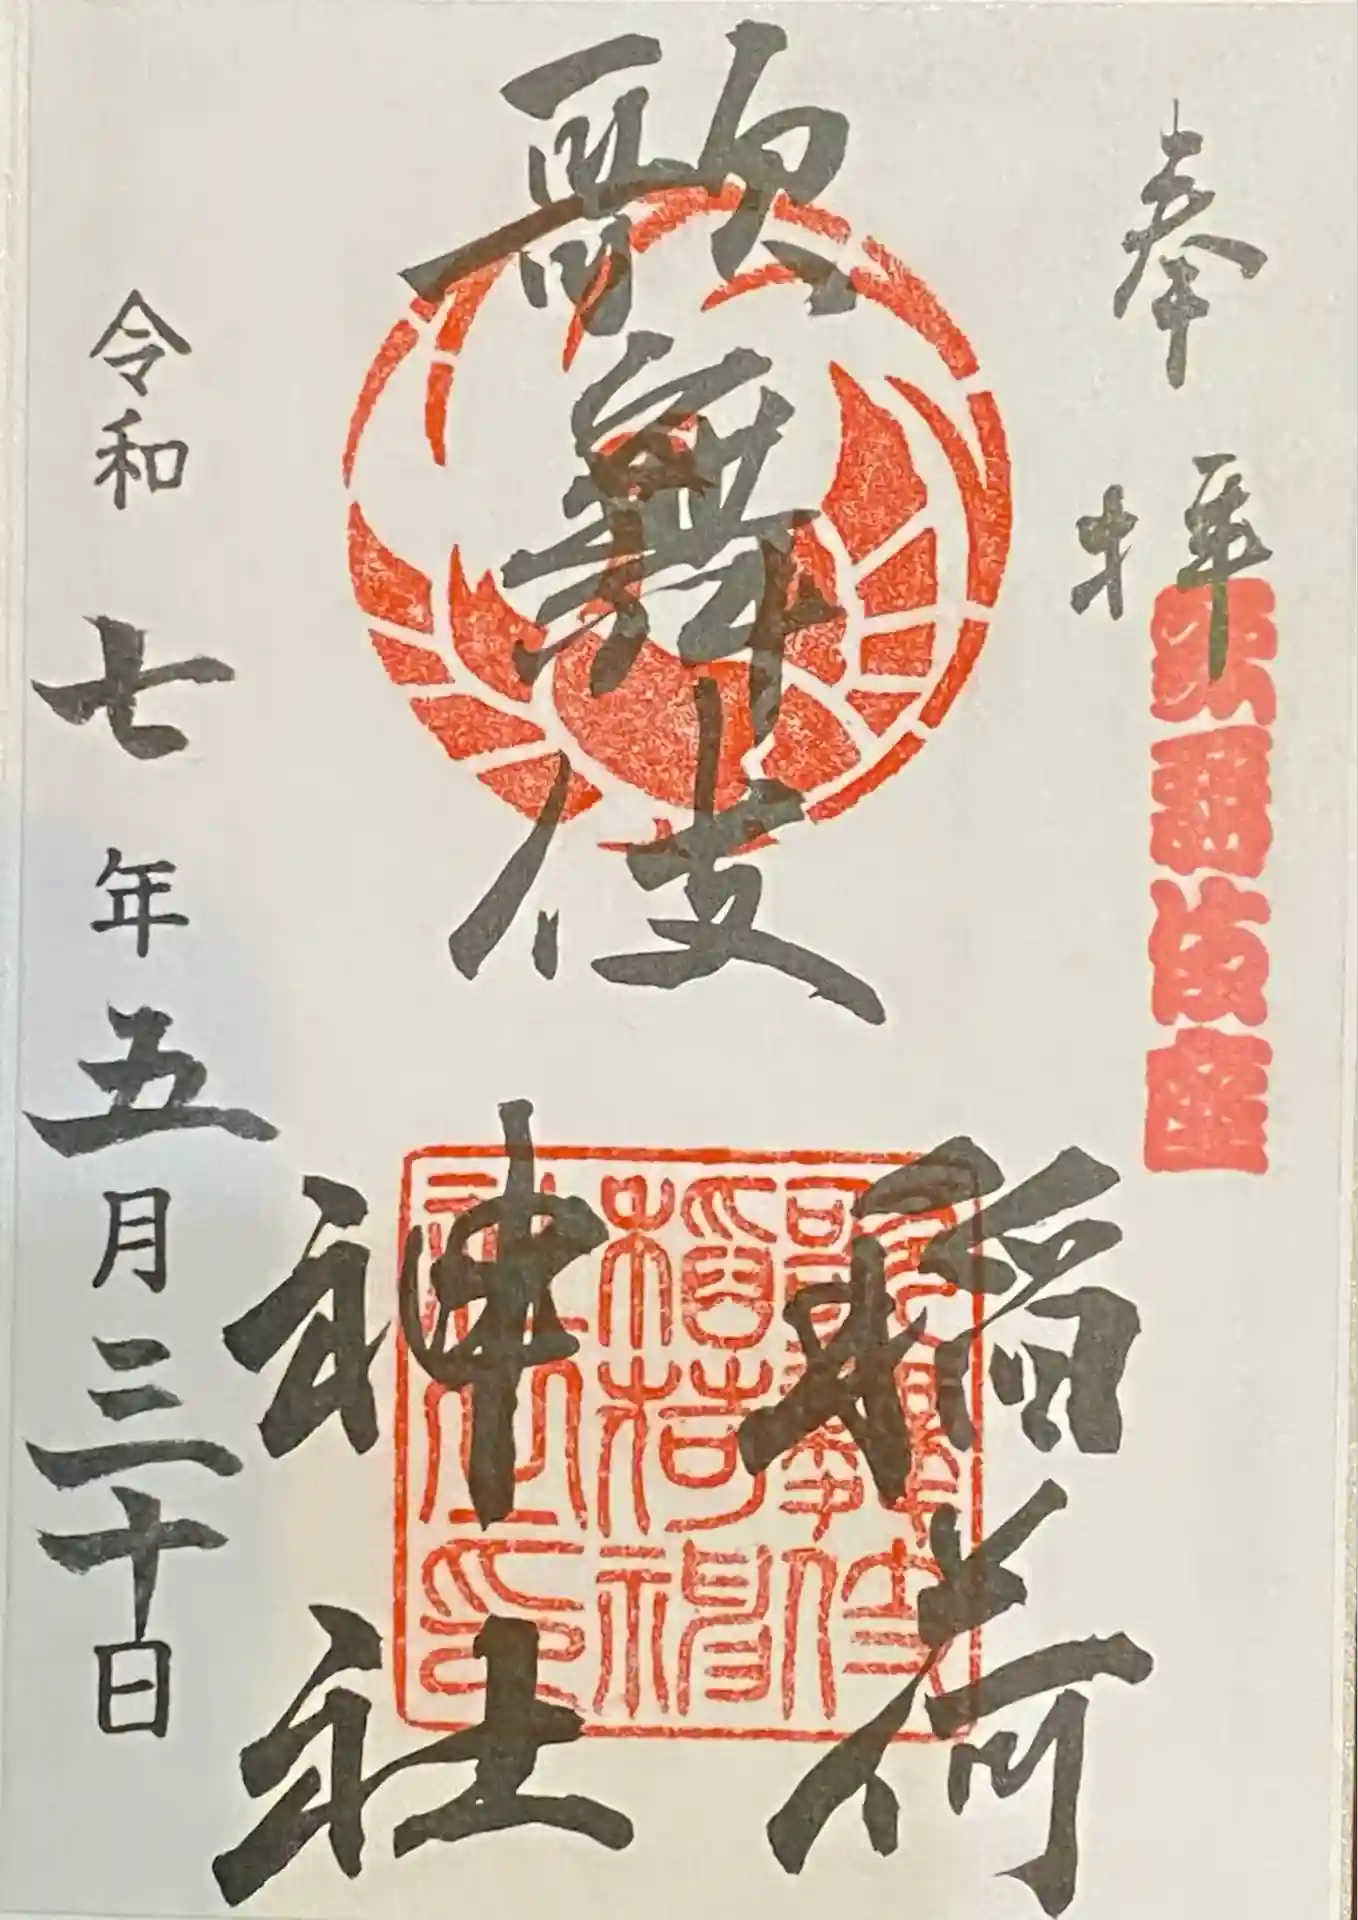 奉拝
歌舞伎座
歌舞伎
稲荷
神社
歌舞伎
稲荷神
社之印
令和七年五月三十日